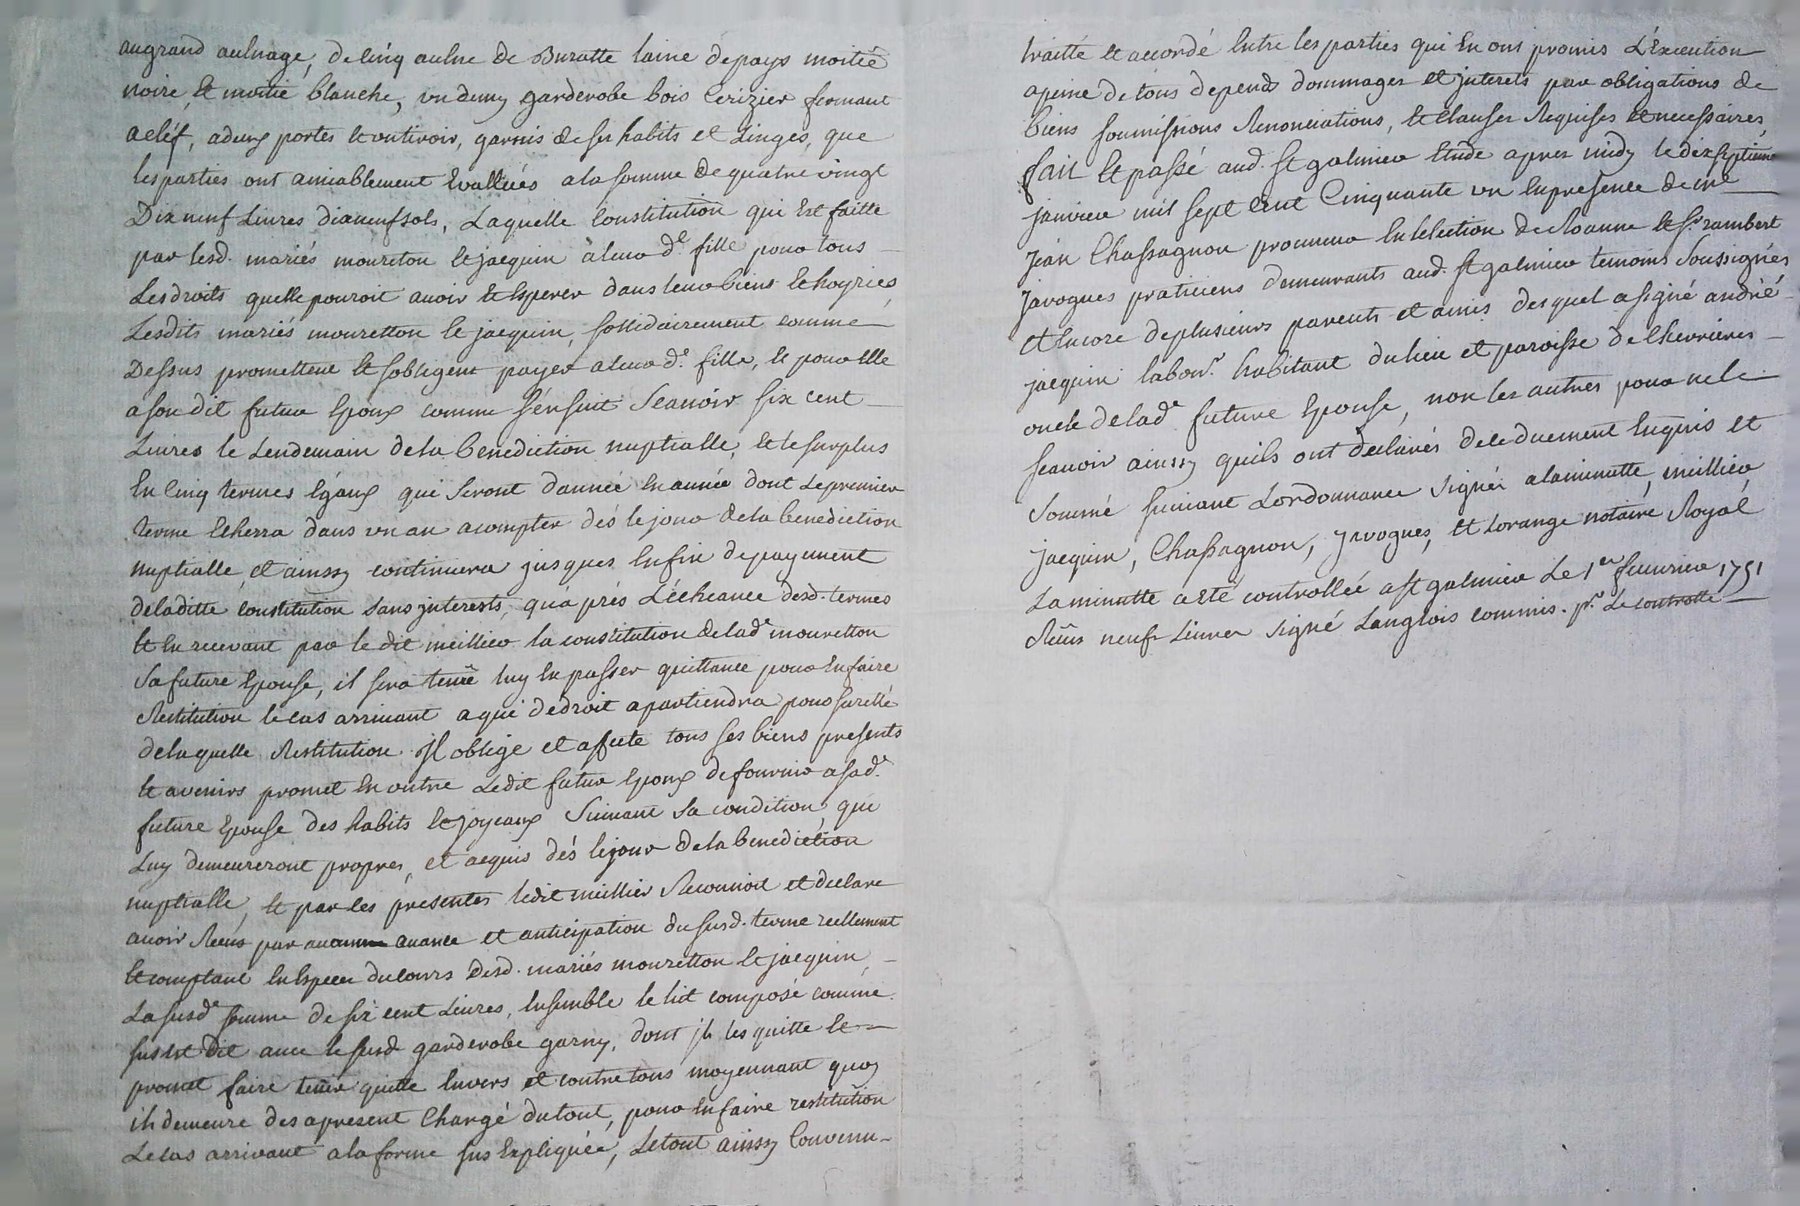 au grand aulnage, de cinq aulne de Buratte laine de pays moitié
noire, et moitié blanche, un demy garderobe bois Cerizier fermant
a cléf, a deux portes et un tiroir, garnis de ses habits et Linges, que
les parties ont amiablement Evallués a la somme de quatre vingt
Dix neuf Livres dix neuf sols, Laquelle Constitution qui Est faitte
par lesd. mariés mouretton et jacquin à leur de. fille pour tous
Les droits quelle pouroit avoir et Esperer dans leurs biens et hoyries,
Lesdits mariés mouretton et jacquin, sollidairement comme
Dessus promettent et sobligent payer a leur de. fille, et pour Elle
a son dit futur Epoux comme s'ensuit Scavoir six cent
Livres le Lendemain de la benediction nuptialle, et le surplus
En Cinq termes Egaux qui seront d'année en année dont Le premier
terme Echerra dans un an a compter dés le jour de la benediction
nuptialle, et ainssy continuera jusques Enfin de payement
de laditte constitution sans interests, qu'a prés L'écheance desd. termes
Et En recevant par le dit meillier la constitution de lade mouretton
Sa future Epouse, il sera tenu luy En passer quittance pour En faire
Restitution le cas arrivant a qui de droit apartiendra pour sureté
de laquelle Restitution Il oblige et afecte tous ses biens presents
et avenirs promet En outre Ledit futur Epoux de fournir a sade.
future Epouse des habits et joyeaux Suivant sa condition, qui
Luy demeureront propres, et acquis dés le jour de la benediction
nuptialle, et par les presentes ledit meillier Reconnoit et declare
avoir Reçus par avance et anticipation du susd. terme reellement
et comptant En Espece du cours desd. mariés mouretton et jacquin
La susde somme de six cent Livres, Ensemble le lit composé comme
sus Est Dit avec le susd garderobe garny, dont il les quitte et
promet faire tenir quitte Envers et contre tous moyennant quoy
il demeure des a present Chargé du tout, pour En faire restitution
Le cas arrivant a la forme sus Expliquée, Le tout ainssy Convenu
traitté et accordé Entre les parties qui En ont promis L'Execution
a peine de tous depends dommages et interets par obligations de
biens soumissions Renonciations, et Clauses Requises et necessaires,
fait et passé aud. St galmier Etude apres midy le dix septieme
janvier mil sept Cent Cinquante un En presence de me
jean Chassagnon procureur En lelection de Roanne et Sr. rambert
javogues praticiens demeurants aud. St galmier temoins Soussignés
et Encore de plusieurs parents et amis desquel a signé andré
jacquin labour. habitant du lieu et paroisse de Chevrieres
oncle de lade future Epouse, non les autres pour ne le
scavoir ainssy quils ont declarés de ce duement Enquis et
sommé suivant L'ordonnance signés a la minutte, meillier
jacquin, Chassagnon, javogues, et Lorange notaire Royal
La minutte a eté controllée a St galmier Le 1er fevvrier 1751
Reçus neuf Livres signé Langlois commis. pr. Le controlle